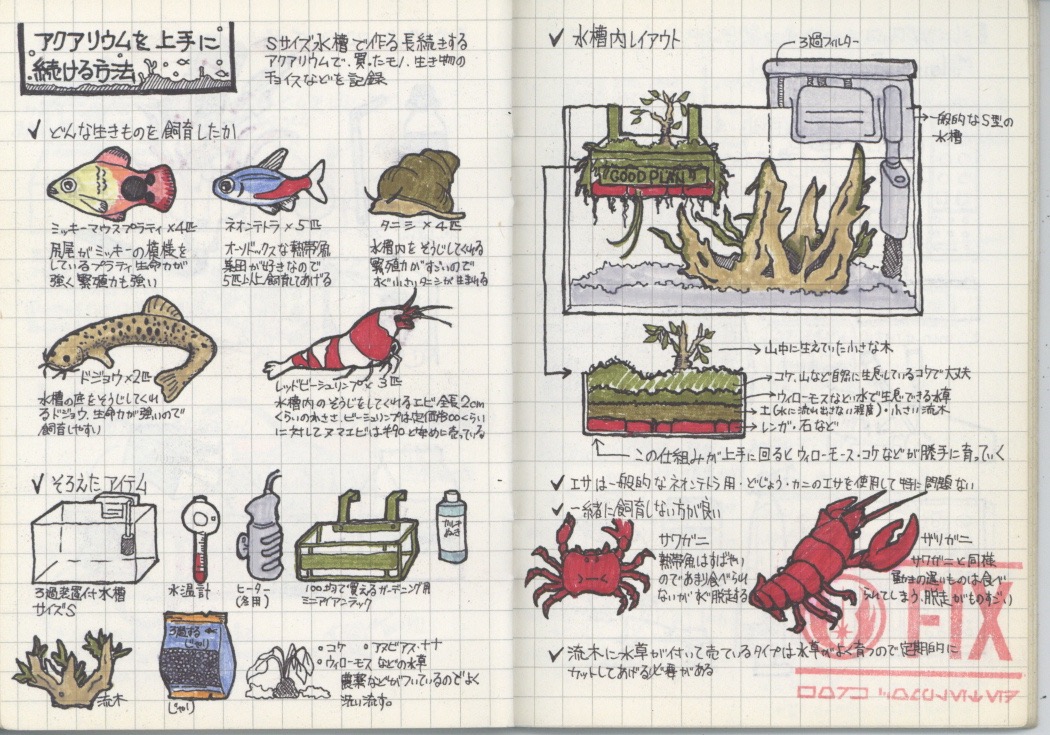 アクアリウムを上手に
続ける方法
Sサイズ水槽で作る長続きする
アクアリウムで、買ったモノ、生き物の
チョイスなどを記録
✓ どんな生きものを飼育したか
ミッキーマウスプラティ×4匹
尻尾がミッキーの模様を
しているプラティ生命力が
強く繁殖力も強い
ネオンテトラ×5匹
オーソドックスな熱帯魚
集団が好きなので
5匹以上飼育してあげる
タニシ×4匹
水槽内をそうじしてくれる
繁殖力がすごいので
すぐ小さいタニシが生まれる
ドジョウ×2匹
水槽の底をそうじしてくれ
るドジョウ、生命力が強いので
飼育しやすい
レッドビーシュリンプ×3匹
水槽内のそうじをしてくれるエビ全長2cm
くらいの大きさ、ビーシュリンプは定価¥300くらい
に対してヌマエビは¥90と安めに売っている
✓ そろえたアイテム
3過装置付水槽
サイズS
水温計
ヒーター
(冬用)
100均で買えるガーデニング用
ミニアイアンラック
カルキ
ぬき
流木
3過する
じゃり
じゃり
・コケ ・アヌビアス・ナナ
・ウィローモスなどの水草
農薬などがついているのでよく
洗い流す。
✓ 水槽内レイアウト
3過フィルター
一般的なS型の
水槽
GOOD PLAN
山中に生えていた小さな木
コケ、山など自然に生息しているコケで大丈夫
ウィローモスなどい水で生息できる水草
土(水に流れ出さない程度)・小さい流木
レンガ・石など
この仕組みが上手に回るとウィローモース・コケなどが勝手に育っていく
✓ エサは一般的なネオンテトラ用・どじょう・カニのエサを使用して特に問題ない
✓ 一緒に飼育しない方が良い
サワガニ
熱帯魚はすばやい
のであまり食べられ
ないがすぐ脱走する
ザリガニ
サワガニと同様
動きの遅いものは食べ
られてしまう、脱走がものすごい
✓ 流木に水草が付いて売ているタイプは水草がよく育つので定期的に
カットしてあげる必要がある
FIX